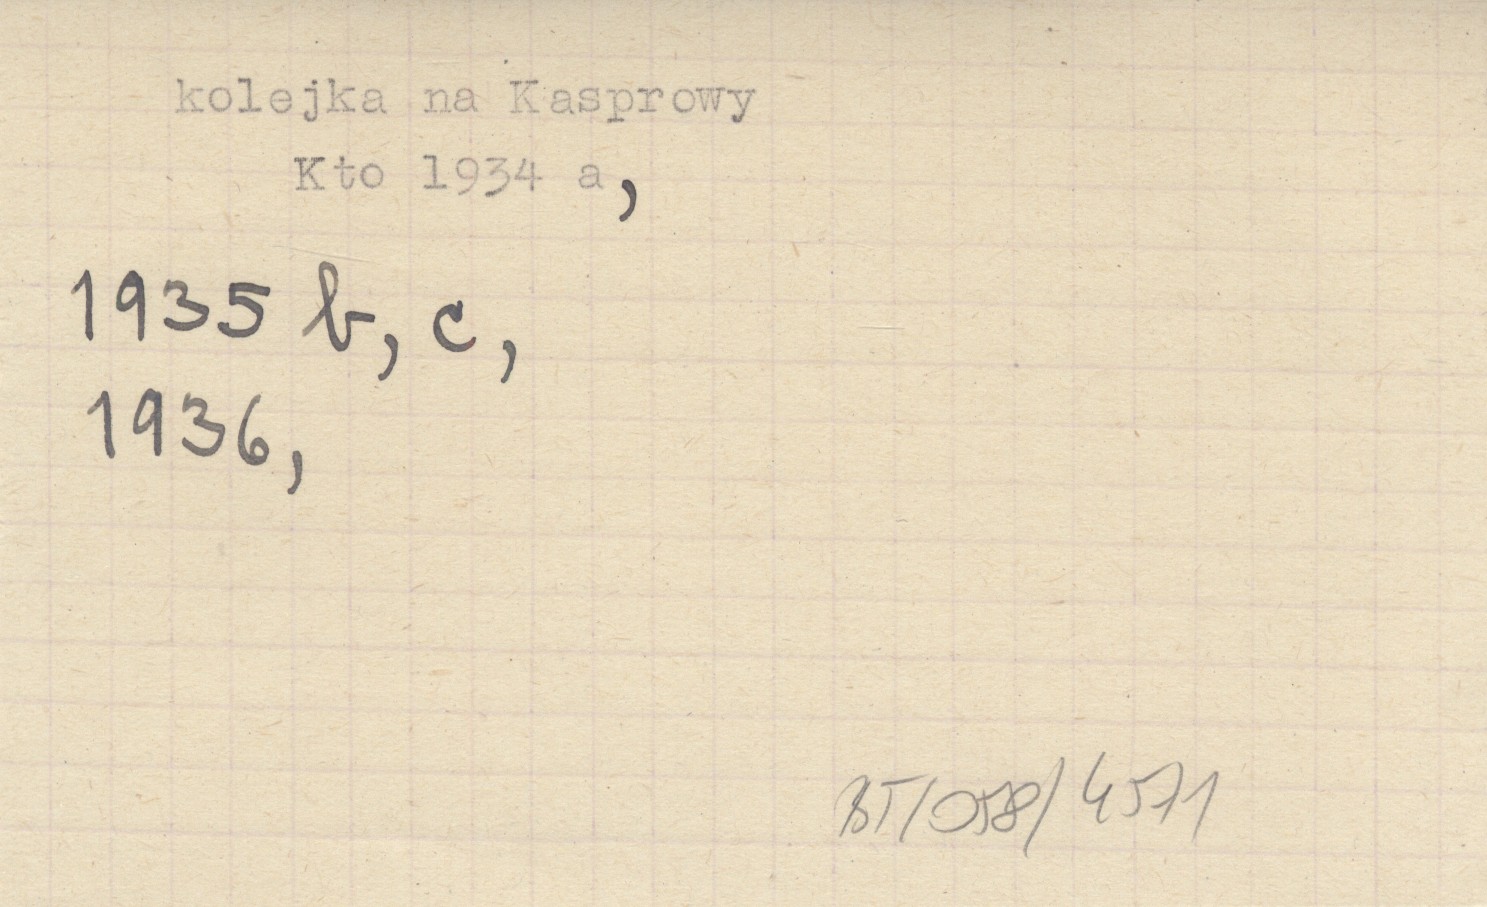 kolejka na Kasprowy
Kto 1934 a,
1935 b, c,
1936,
BT/058/4571